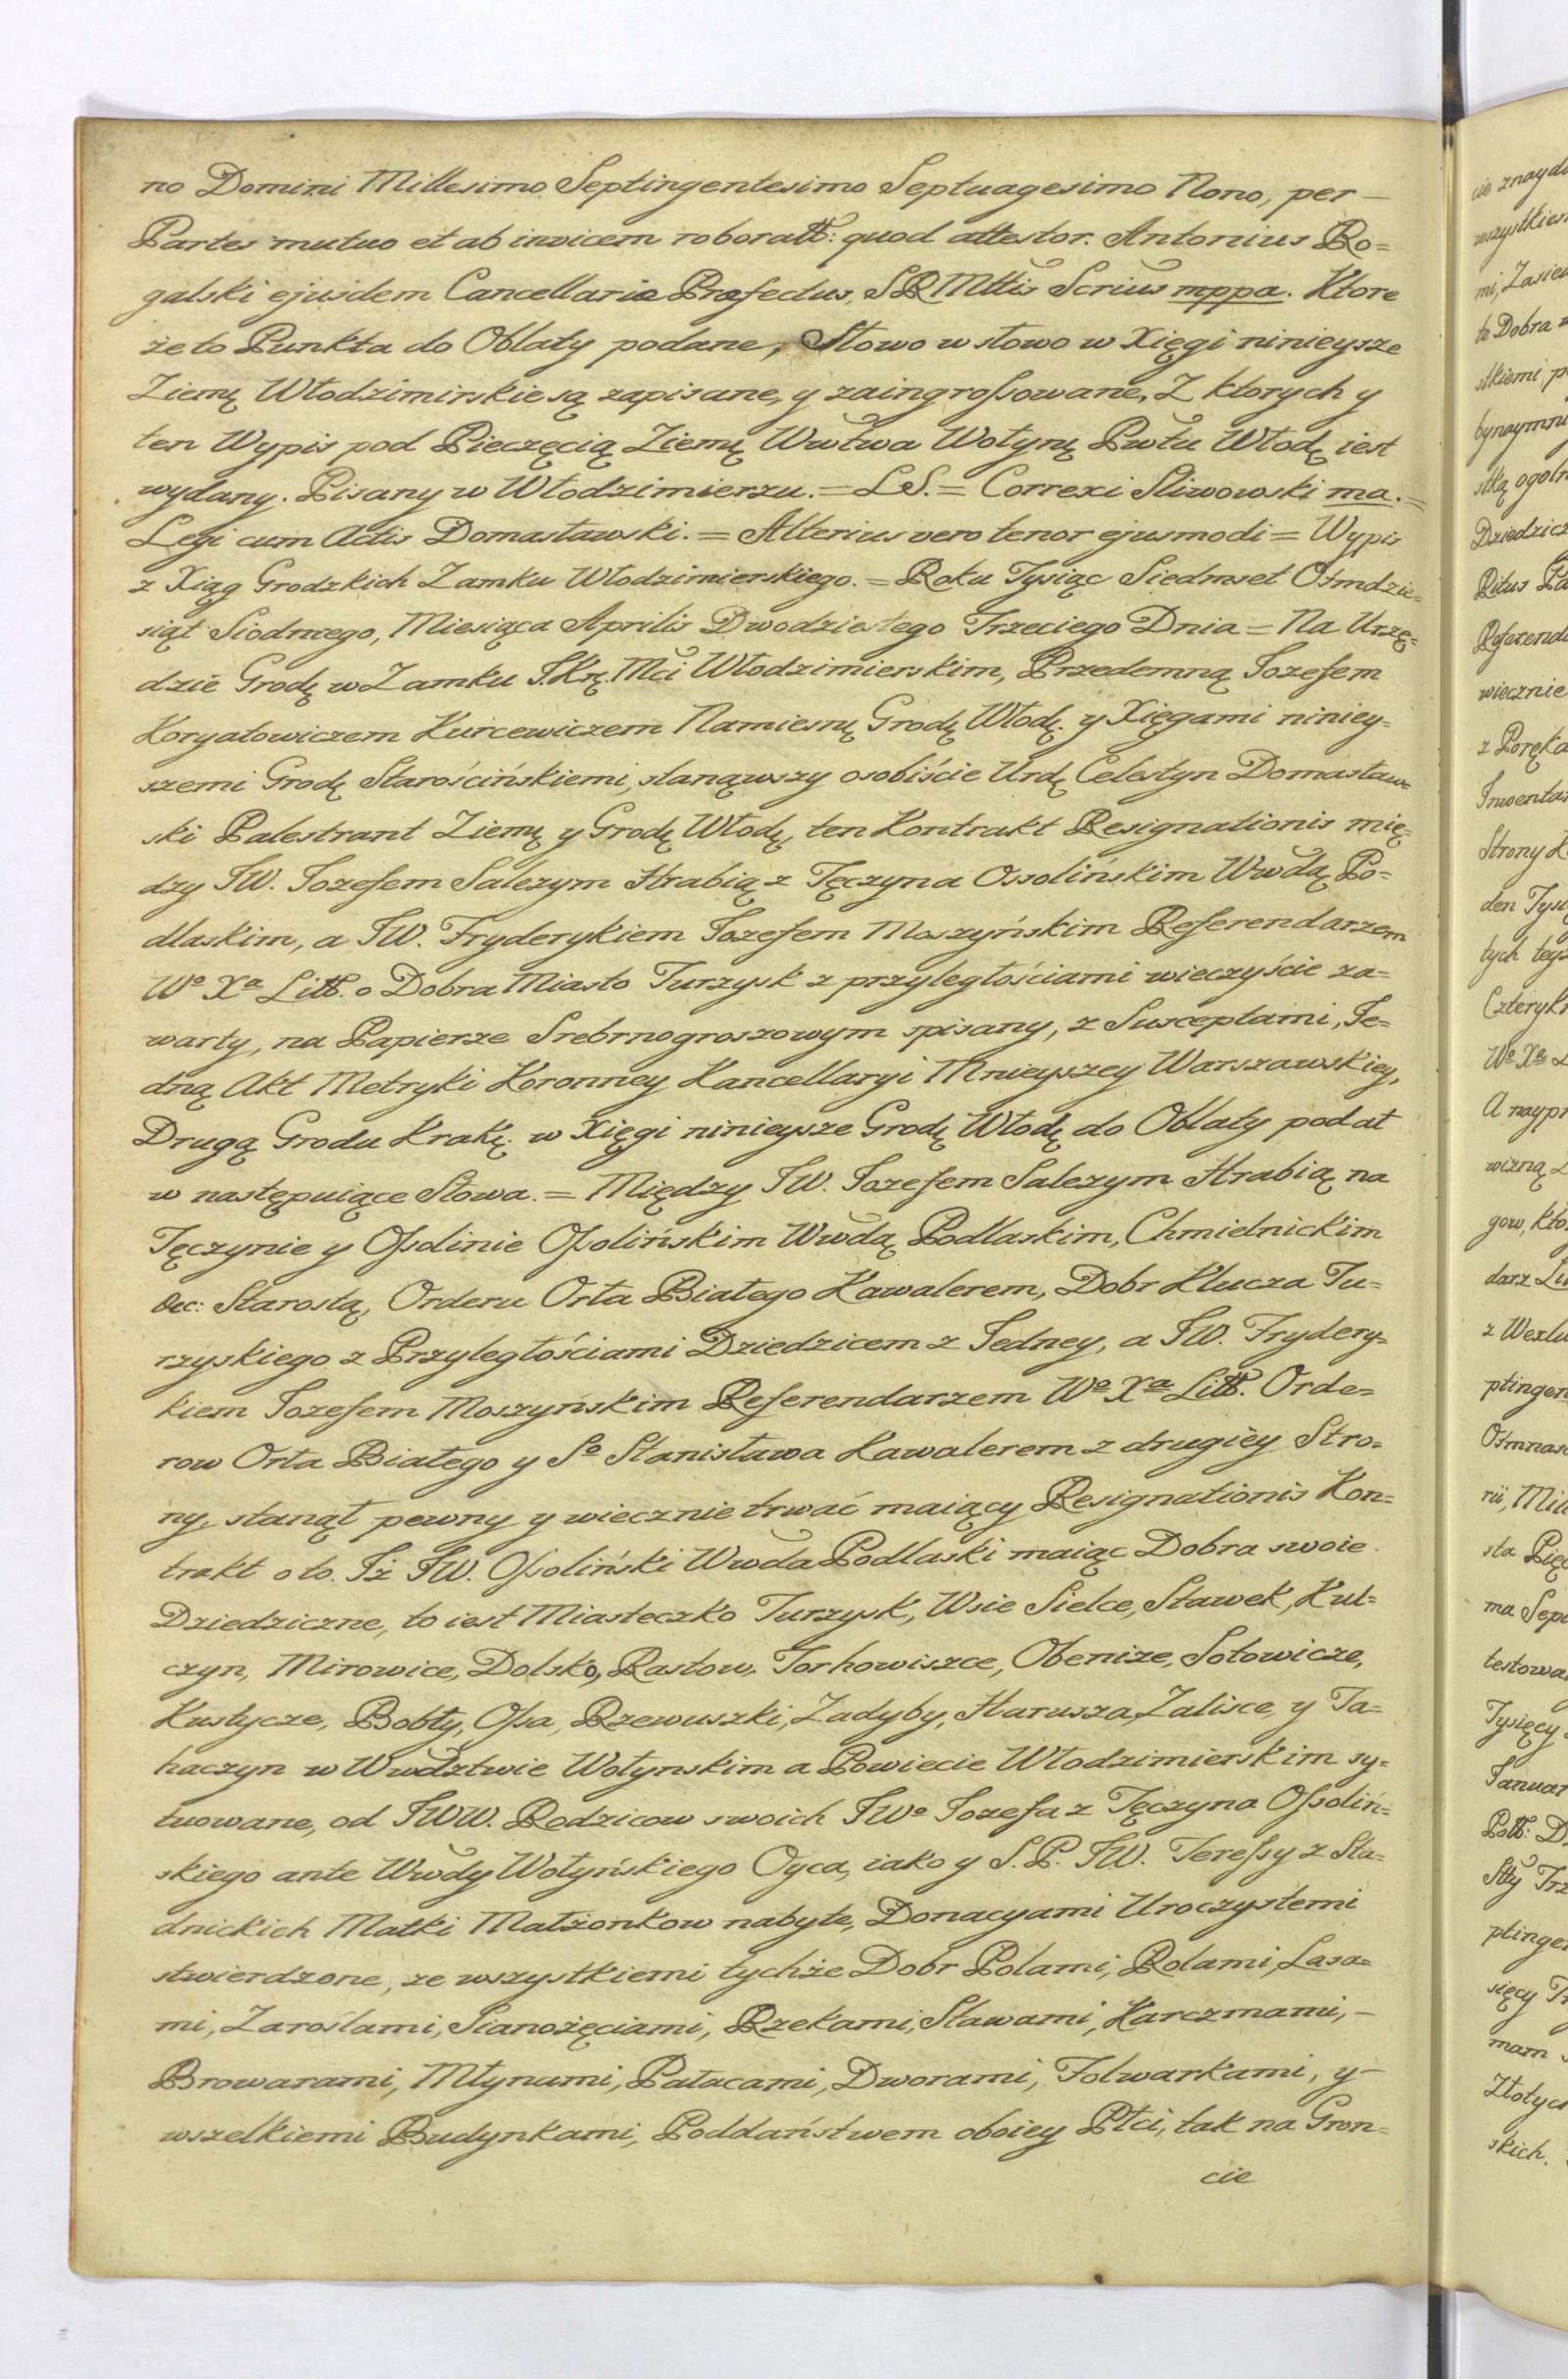 no Domini Millesimo Septingentesimo Septuagesimo Nono, per —
Partes mutuo et ab invicem roboratt: quod attestor. Antonius Ro=
galski ejusdem Cancellariæ Præfectus, SRMttis Scrius mppa. Ktore
że to Punkta do Oblaty podane, Słowo w słowo w Xięgi ninieysze
Ziemę Włodzimirskie są zapisane, y zaingrossowane, Z ktorych y
ten Wypis pod Pieczęcią Ziemę Wwtwa Wołynę Pwtu Włodę iest
wydany. Pisany w Włodzimierzu. = LS. = Correxi Sliwowski ma. =
Legi cum Actis Domasławski. = Alterius vero tenor ejusmodi = Wypis
z Xiąg Grodzkich Zamku Włodzimierskiego. = Roku Tysiąc Siedmset Osmdzie=
siąt Siodmego, Miesiąca Aprilis Dwodziestego Trzeciego Dnia = Na Urzę=
dzie Grodę w Zamku J.Krę. Mci Włodzimierskim, Przedemną Jozefem
Koryatowiczem Kurcewiczem Namiesnę Grodę Włodę. y Xięgami niniey=
szemi Grodę Starościńskiemi, stanąwszy osobiście Urdę Celestyn Domasław=
ski Palestrant Ziemę y Grodę Włodę, ten Kontrakt Resignationis mię=
dzy JW. Jozefem Salezym Hrabią z Tęczyna Ossolińskim Wwdą Po=
dlaskim, a JW. Fryderykiem Jozefem Moszyńskim Referendarzem
Wº Xª Litt. o Dobra Miasto Turzysk z przyległościami wieczyście za=
warty, na Papierze Srebrnogroszowym spisany, z Susceptami, Je=
dną Akt Metryki Koronney Kancellaryi Mnieyszey Warszawskiey,
Drugą Grodu Krakę. w Xięgi ninieysze Grodę Włodę do Oblaty podał
w następuiące Słowa. = Między JW. Jozefem Salezym Hrabią na
Tęczynie y Ossolinie Ossolińskim Wwdą Podlaskim, Chmielnickim
&c: Starostą, Orderu Orła Białego Kawalerem, Dobr Klucza Tu=
rzyskiego z Przyległościami Dziedzicem z Jedney, a JW. Frydery=
kiem Jozefem Moszyńskim Referendarzem Wº Xª Litt. Orde=
row Orła Białego y Sº Stanisława Kawalerem z drugiey Stro=
ny, stanął pewny y wiecznie trwać maiący Resignationis Kon=
trakt o to. Iż JW. Ossoliński Wwda Podlaski maiąc Dobra swoie
Dziedziczne, to iest Miasteczko Turzysk, Wsie Sielce, Stawek, Kul=
czyn, Mirowice, Dolsko, Rastow, Torhowiszce, Obeniże, Sołowicze,
Kustycze, Bobły, Ossa, Rzewuszki, Zadyby, Harusza, Zalisce, y Ta=
haczyn w Wwdztwie Wołynskim a Powiecie Włodzimierskim sy=
tuowane, od JWW. Rodzicow swoich JWº Jozefa z Tęczyna Ossoliń=
skiego ante Wwdy Wołyńskiego Oyca, iako y S.P. JW. Teressy z Sta=
dnickich Matki Małżonkow nabyte, Donacyami Uroczystemi
stwierdzone, ze wszystkiemi tychże Dobr Polami, Rolami, Lasa=
mi, Zaroślami, Sianożęciami, Rzekami, Stawami, Karczmami, —
Browarami, Młynami, Pałacami, Dworami, Folwarkami, y —
wszelkiemi Budynkami, Poddaństwem oboiey Płci, tak na Gron=
cie